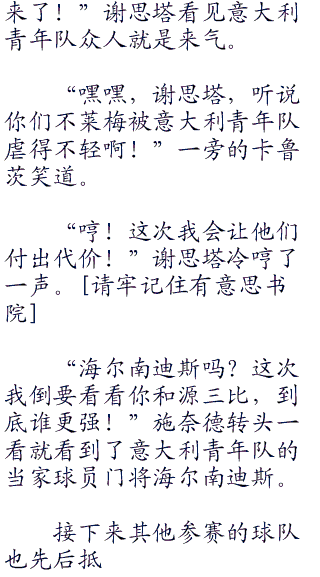 来了！”谢思塔看见意大利
青年队众人就是来气。
“嘿嘿，谢思塔，听说
你们不莱梅被意大利青年队
虐得不轻啊！”一旁的卡鲁
茨笑道。
“哼！这次我会让他们
付出代价！”谢思塔冷哼了
一声。[请牢记住有意思书
院]
“海尔南迪斯吗？这次
我倒要看看你和源三比，到
底谁更强！”施奈德转头一
看就看到了意大利青年队的
当家球员门将海尔南迪斯。
接下来其他参赛的球队
也先后抵